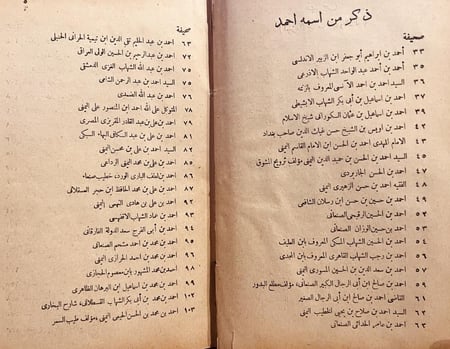 ذكر من اسمه احمد
صحيفة
٣٣ أحمد بن ابراهيم أبو جعفر ابن الزبير الاندلسى
٣٥ احمد بن أحمد عبد الواحد الشهاب الاذرعى
٣٦ السيد احمد بن احمد الآنسى المعروف بالزنمه
٣٧ احمد بن اسماعيل بن أبى بكر الشهاب الابشيطى
٣٩ احمد بن اسماعيل بن عثمان السكورانى شيخ الاسلام
٤٢ احمد بن اويس بن الشيخ حسن غياث الدين صاحب بغداد
٤٣ الامام المهدى احمد بن الحسن ابن الامام القاسم اليمنى
٤٥ السيد احمد بن الحسن بن حميد الدين اليمنى مؤلف ترويح المشوق
٤٧ احمد بن الحسن الجاربردى
٤٨ الفقيه احمد بن حسن الزهيرى اليمنى
٤٩ احمد بن حسين بن حسن ابن رسلان الشافعى
٥٢ احمد بن الحسين الرقيحى الصنعانى
٥٣ احمد بن حسين الوزان الصنعانى
٥٤ احمد بن الحسين الشهاب المكى المعروف بابن العليف
٥٦ احمد بن رجب الشهاب القاهرى المعروف بابن المجدى
٥٧ احمد بن سعد الدين بن الحسين المسورى اليمنى
٥٩ احمد بن صالح ابن أبى الرجال الكبير الصنعانى، مؤلف مطلع البدور
٦١ القاضى أحمد بن صالح ابن أبى الرجال الصغير
٦٢ احمد بن صلاح بن يحيى الخطيب اليمنى
٦٣ احمد بن عامر الحدائى الصنعانى
صحيفة
٦٣ احمد بن عبد الحليم تقى الدين ابن تيمية الحرانى الحنبلى
٧٢ احمد بن عبد الرحيم بن الحسين الولى العراقى
٧٥ احمد بن عبد الله الشهاب الغزى الدمشقى
٧٥ السيد احمد بن عبد الرحمن الشامى
٧٦ احمد بن عبد الله الضمدى
٧٨ المتوكل على الله احمد ابن المنصور على اليمنى
٧٩ احمد بن على بن عبد القادر المقريزى المصرى
٨١ احمد بن على بن عبد الكافى البهاء السبكى
٨٢ احمد بن على بن محسن اليمنى
احمد بن على بن محمد اليمنى الرداعى
احمد بن لطف البارى الورد، خطيب صنعاء
٨٧ احمد بن على بن محمد الحافظ ابن حجر العسقلانى
٩٢ احمد بن على بن هادى النهمى اليمنى
٩٣ احمد بن عماد الشهاب الاقفهسى
٩٤ احمد بن أبى الفرج سعد الدولة الفارقانى
٩٥ احمد بن محمد بن احمد مشحم الصنعانى
احمد بن محمد بن احمد الحرازى اليمنى
٩٨ احمد بن محمد المشهور بابن معصوم الحجازى
٩٩ احمد بن محمد بن اسماعيل ابن البرهان الظاهرى
١٠٢ احمد بن محمد بن أبى بكر الشهاب القسطلانى، شارح البخارى
١٠٣ احمد بن محمد بن الحسن الحيمى اليمنى، مؤلف طيب السمر